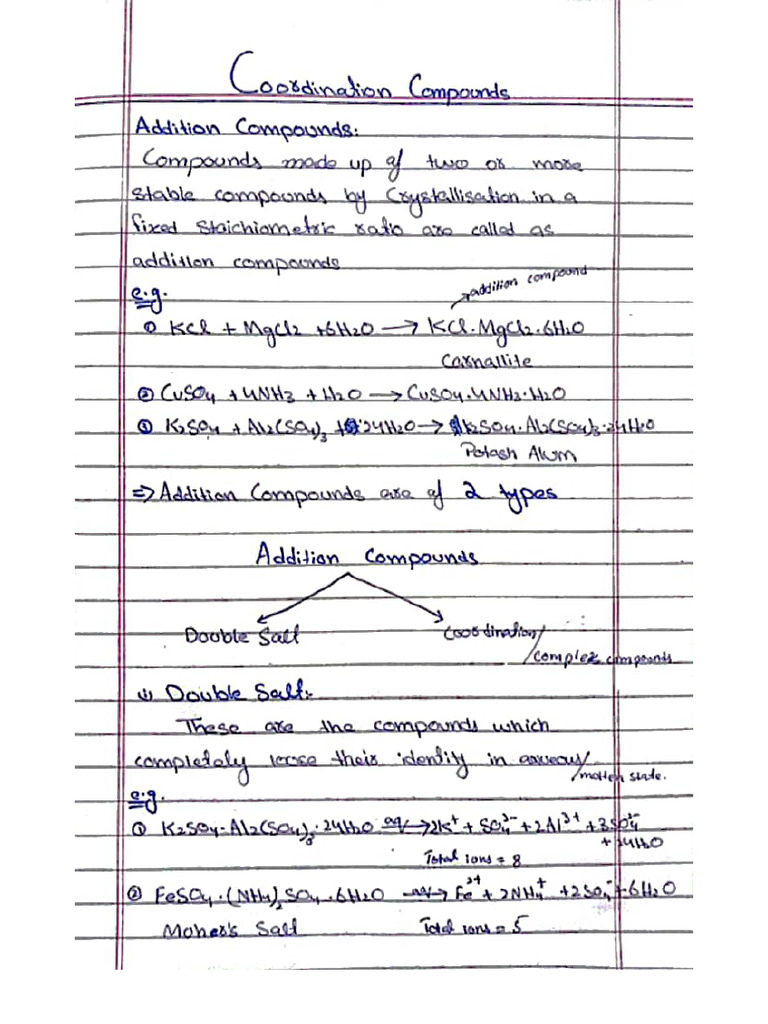 Coordination Compounds
Addition Compounds:
Compounds made up of two or more
stable compounds by Crystallisation in a
fixed Stoichiometric ratio are called as
addition compounds
e.g.
→addition compound
① KCl + MgCl2 + 6H2O → KCl.MgCl2.6H2O
Carnallite
② CuSO4 + 4NH3 + H2O → CuSO4.4NH3.H2O
③ K2SO4 + Al2(SO4)3 + 24H2O → K2SO4.Al2(SO4)3.24H2O
Potash Alum
⇒ Addition Compounds are of 2 types
Addition Compounds
Double Salt Coordination/
/complex compounds
(i) Double Salt:
These are the compounds which
completely loose their identity in aqueous/
/molten state.
e.g.
① K2SO4.Al2(SO4)3.24H2O aq→ 2K⁺ + SO4²⁻ + 2Al³⁺ + 3SO4²⁻
+ 24H2O
Total ions = 8
② FeSO4.(NH4)2SO4.6H2O aq→ Fe²⁺ + 2NH4⁺ + 2SO4²⁻ + 6H2O
Moher's Salt Total ions = 5